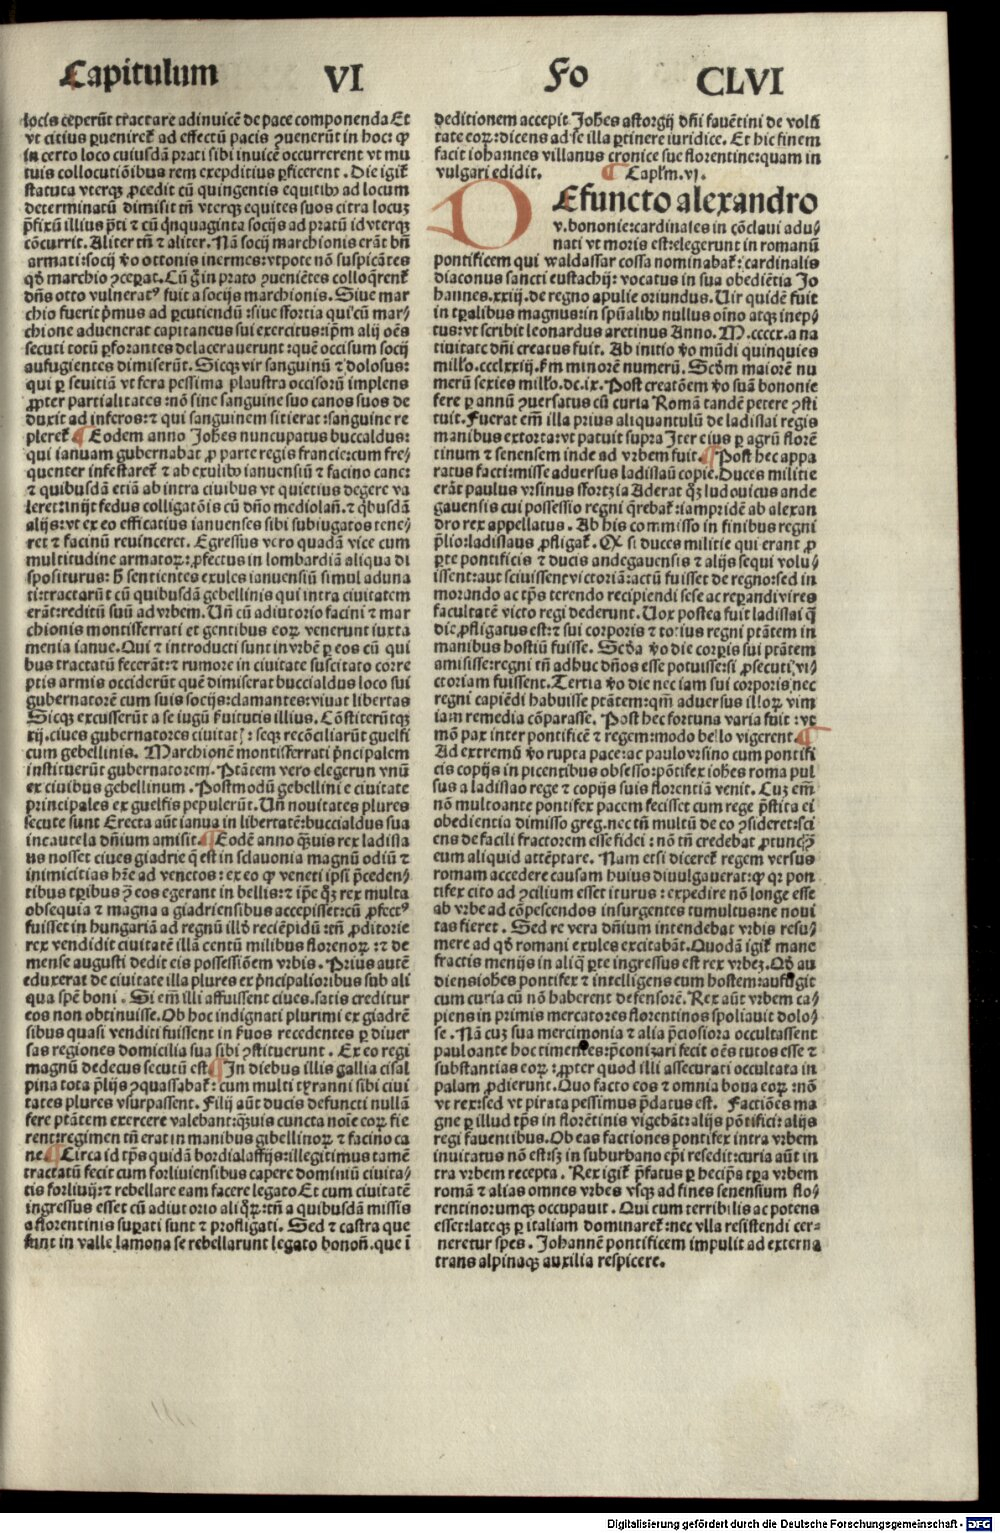 Capitulum VI Fo CLVI
locis ceperūt tractare adinuicē de pace componenda Et
vt citius ꝑuenireƭ ad effectū pacis ꝯuenerūt in hoc: ꝙ
in certo loco cuiusdā prati sibi inuicē occurrerent vt mu
tuis collocutiōibus rem exepditius ꝑficerent. Die igiƭ
statuta vterqꝫ ꝓcedit cū quingentis equitibꝰ ad locum
determinatū dimisit tn̄ vterqꝫ equites suos citra locuꝫ
p̄fixū illius pti ⁊ cū qnquaginta socijs ad pratū id vterqꝫ
cōcurrit. Aliter tn̄ ⁊ aliter. Nā socij marchionis erāt bn̄
armati: socij ꝟo ottonis inermes: vtpote nō suspicātes
qd̄ marchio ꝯceꝑat. Cū g̊ in prato ꝯueniētes colloq̄renƭ
dn̄s otto vulneratꝰ fuit a socijs marchionis. Siue mar
chio fuerit p̄mus ad ꝑcutiendū: siue sfortia qui cū mar/
chione aduenerat capitaneus sui exercitus: ip̄m alij oēs
secuti totū ꝑforantes delacerauerunt: quē occisum socij
aufugientes dimiserūt. Sicqꝫ vir sanguinū ⁊ dolosus:
qui ꝑ seuitiā vt fera pessima plaustra occisorū implens
ꝓpter partialitates: nō sine sanguine suo canos suos de
duxit ad inferos: ⁊ qui sanguinem sitierat: sanguine re
plereƭ ¶ Eodem anno Joh̄es nuncupatus buccaldus:
qui ianuam gubernabat ꝓ parte regis francie: cum fre/
quenter infestareƭ ⁊ ab exulibꝰ ianuensiū ⁊ facino cane:
⁊ quibusdā etiā ab intra ciuibus vt quietius degere va
leret: inijt fedus colligatōis cū dn̄o mediolan̄. ⁊ qbusdā
alijs: vt ex eo efficatius ianuenses sibi subiugatos tene/
ret ⁊ facinū reuinceret. Egressus vero quadā vice cum
multitudine armatoꝝ: ꝓfectus in lombardiā aliqua di
spositurus: h̄ sentientes exules ianuensiū simul aduna
ti: tractarūt cū quibusdā gebellinis qui intra ciuitatem
erāt: reditū suū ad vrbem. Un̄ cū adiutorio facini ⁊ mar
chionis montisferrati et gentibus eoꝝ venerunt iuxta
menia ianue. Qui ⁊ introducti sunt in vrbē ꝑ eos cū qui
bus tractatū fecerāt: ⁊ rumore in ciuitate suscitato corre
ptis armis occiderūt quē dimiserat buccialdus loco sui
gubernatorē cum suis socijs: clamantes: viuat libertas
Sicqꝫ excusserūt a se iugū ẜuitutis illius. Cōstiterūtqꝫ
xij. ciues gubernatores ciuitaƭ: seqꝫ recōciliarūt guelfi
cum gebellinis. Marchionē montisferrati p̄ncipalem
instituerūt gubernatorem. Ptātem vero elegerun vnū
ex ciuibus gebellinum. Postmodū gebellini e ciuitate
principales ex guelfis pepulerūt. Un̄ nouitates plures
secute sunt Erecta aūt ianua in libertatē: buccialdus sua
incautela dn̄ium amisit. ¶ Eodē anno q̄uis rex ladisla
us nosset ciues giadrie q̄ est in sclauonia magnū odiū ⁊
inimicitias hr̄e ad venetos: ex eo ꝙ veneti ipsi p̄ceden/
tibus tꝑibus ꝯ eos egerant in bellis: ⁊ ip̄e qꝫ rex multa
obsequia ⁊ magna a giadriensibus accepisset: cū ꝓfectꝰ
fuisset in hungariā ad regnū illd̄ recipiēdū: tn̄ ꝓditorie
rex vendidit ciuitatē illā centū milibus florenoꝝ: ⁊ de
mense augusti dedit eis possessiōem vrbis. Prius autē
eduxerat de ciuitate illa plures ex p̄ncipalioribus sub ali
qua spē boni. Si em̄ illi affuissent ciues. satis creditur
eos non obtinuisse. Ob hoc indignati plurimi ex giadrē
sibus quasi venditi fuissent in ẜuos recedentes ꝑ diuer
sas regiones domicilia sua sibi ꝯstituerunt. Ex eo regi
magnū dedecus secutū est ¶ In diebus illis gallia cisal
pina tota p̄lijs ꝯquassabaƭ: cum multi tyranni sibi ciui
tates plures vsurpassent. Filij aūt ducis defuncti nullā
fere ptātem exercere valebant: q̄uis cuncta noīe eoꝝ fie
rent: regimen tn̄ erat in manibus gibellinoꝝ ⁊ facino ca
ne. ¶ Circa id tp̄s quidā bordialaffijs: illegitimus tamē
tractatū fecit cum forliuiensibus capere dominiū ciuita/
tis forliuij: ⁊ rebellare eam facere legato Et cum ciuitatē
ingressus esset cū adiutorio aliqꝝ: tn̄ a quibusdā missis
a florentinis suꝑati sunt ⁊ profligati. Sed ⁊ castra que
sunt in valle lamona se rebellarunt legato bonon̄. que ī
deditionem accepit Joh̄es astorgij dn̄i fauētini de volū
tate eoꝝ: dicens ad se illa ꝑtinere iuridice. Et hic finem
facit iohannes villanus cronice sue florentine: quam in
vulgari edidit. ¶ Capl'm. vj.
DEfuncto alexandro
v. bononie: cardinales in cōclaui adu/
nati vt moris est: elegerunt in romanū
pontificem qui waldassar cossa nominabaƭ: cardinalis
diaconus sancti eustachij: vocatus in sua obediētia Jo
hannes. xxiij. de regno apulie oriundus. Uir quidē fuit
in tꝑalibus magnus: in spūalibꝰ nullus oīno atqꝫ inep/
tus: vt scribit leonardus aretinus Anno. M. ccccx. a na
tiuitate dn̄i creatus fuit. Ab initio ꝟo mūdi quinquies
mill'o. ccclxxiij. ẜm minorē numerū. Scd̄m maiorē nu
merū sexies mill'o. dc. ix. Post creatōem ꝟo suā bononie
fere ꝑ annū ꝯuersatus cū curia Romā tandē petere ꝯsti
tuit. Fuerat em̄ illa prius aliquantulū de ladislai regis
manibus extorta: vt patuit supra Iter eius ꝑ agrū florē
tinum ⁊ senensem inde ad vrbem fuit. ¶ Post hec appa
ratus facti: misse aduersus ladislaū copie. Duces militie
erāt paulus vrsinus sfortzia Aderat qꝫ ludouicus ande
gauensis cui possessio regni q̄rebaƭ: iampridē ab alexan
dro rex appellatus. Ab his commisso in finibus regni
p̄lio: ladislaus ꝓfligaƭ. Qꝙ si duces militie qui erant ꝓ
ꝑte pontificis ⁊ ducis andegauensis ⁊ alijs sequi volu/
issent: aut sciuissent victoriā: actū fuisset de regno: sed in
morando ac tp̄s terendo recipiendi sese ac reꝑandi vires
facultatē victo regi dederunt. Uox postea fuit ladislai q̄
die ꝓfligatus est: ⁊ sui corporis ⁊ totius regni ptātem in
manibus hostiū fuisse. Scd̄a ꝟo die corꝑis sui ptātem
amisisse: regni tn̄ adhuc dn̄os esse potuisse: si ꝓsecuti vi/
ctoriam fuissent. Tertia ꝟo die nec iam sui corporis nec
regni capiēdi habuisse ptātem: qm̄ aduersus illoꝝ vim
iam remedia cōparasse. Post hec fortuna varia fuit: vt
mō pax inter pontificē ⁊ regem: modo bello vigerent. ¶
Ad extremū ꝟo rupta pace: ac paulo vrsino cum pontifi
cis copijs in picentibus obsesso: pōtifex ioh̄es roma pul
sus a ladislao rege ⁊ copijs suis florentiā venit. Cuꝫ em̄
nō multo ante pontifex pacem fecisset cum rege p̄stita ei
obedientia dimisso greg. nec tn̄ multū de eo ꝯsideret: sci
ens de facili fractorem esse fidei: nō tn̄ credebat ꝓtunc ꝯ
eum aliquid attēptare. Nam etsi dicereƭ regem versus
romam accedere causam huius diuulgauerat: ꝙ qꝛ pon
tifex cito ad ꝯcilium esset iturus: expedire nō longe esse
ab vrbe ad cōpescendos insurgentes tumultus: ne noui
tas fieret. Sed re vera dn̄ium intendebat vrbis resu/
mere ad qd̄ romani exules excitabāt. Quodā igiƭ mane
fractis menijs in aliq̄ ꝑte ingressus est rex vrbeꝫ. Qd̄ au
diens ioh̄es pontifex ⁊ intelligens eum hostem: aufugit
cum curia cū nō haberent defensorē. Rex aūt vrbem ca/
piens in primis mercatores florentinos spoliauit dolo/
se. Nā cuꝫ sua mercimonia ⁊ alia p̄ciosiora occultassent
paulo ante hoc timentes: p̄conizari fecit oēs tutos esse ⁊
substantias eoꝝ: ꝓpter quod illi assecurati occultata in
palam ꝓdierunt. Quo facto eos ⁊ omnia bona eoꝝ: nō
vt rex: sed vt pirata pessimus p̄datus est. Factiōes ma
gne ꝑ illud tp̄s in florētinis vigebāt: alijs pōtifici: alijs
regi fauentibus. Ob eas factiones pontifex intra vrbem
inuitatus nō est: sꝫ in suburbano epī resedit: curia aūt in
tra vrbem recepta. Rex igiƭ p̄fatus ꝑ becip̄s tꝑa vrbem
romā ⁊ alias omnes vrbes vsqꝫ ad fines senensium flo/
rentinorumqꝫ occupauit. Qui cum terribilis ac potens
esset: lateqꝫ ꝑ italiam dominareƭ: nec vlla resistendi cer=
neretur spes. Johannē pontificem impulit ad externa
transalpinaqꝫ auxilia respicere.
Digitalisierung gefördert durch die Deutsche Forschungsgemeinschaft - DFG